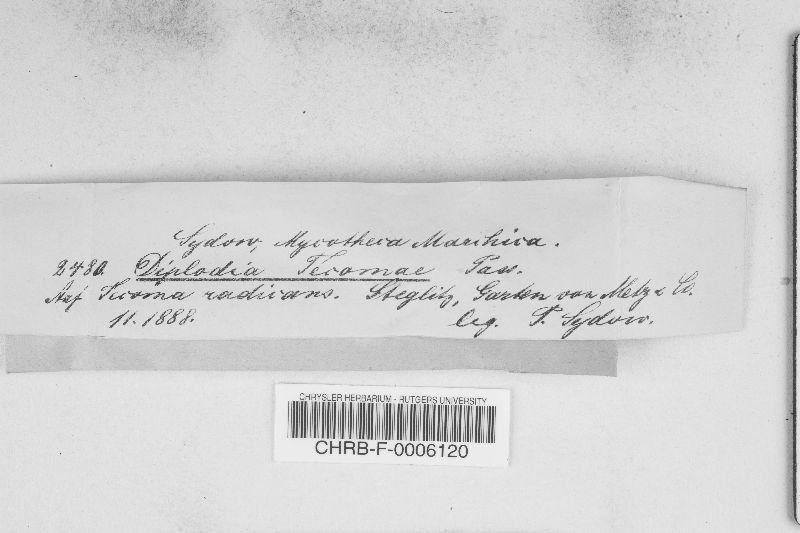 Sydow, Mycotheca Marchica.
2480. Diplodia Tecomae Pass.
Auf Tecoma radicans. Steglitz, Garten von Metz & Co.
11. 1888. leg. P. Sydow.
CHRYSLER HERBARIUM - RUTGERS UNIVERSITY
CHRB-F-0006120